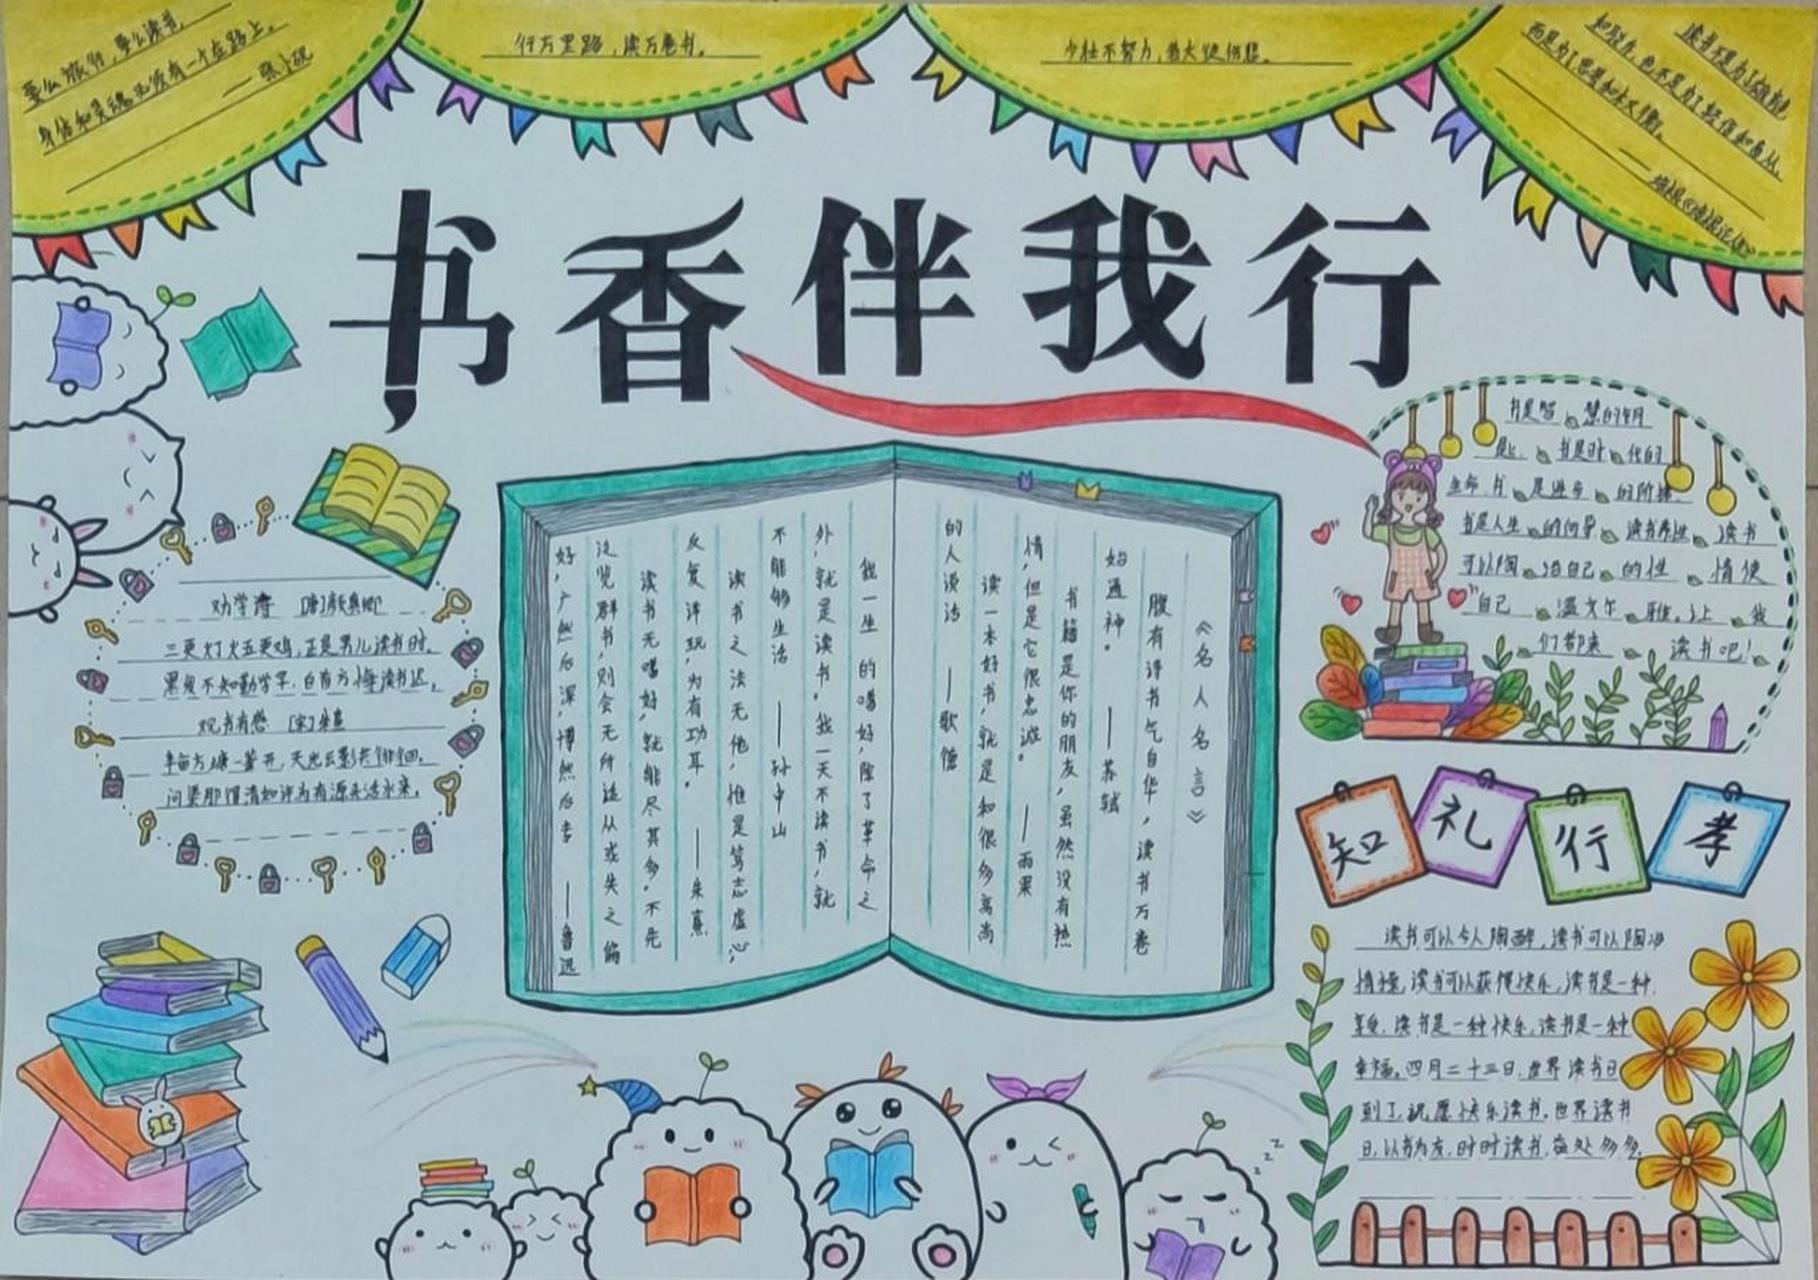 要么旅行，要么读书，
身体和灵魂必须有一个在路上。
行万里路，读万卷书。
少壮不努力，老大徒伤悲。
读书不是为了雄辩
和驳斥，也不是为了轻信和盲从，
而是为了思考和权衡。
书香伴我行
书是智慧的钥
匙，书是时代的
生命，书是进步的阶梯
书是人生的向导，读书养性，读书
可以陶冶自己的性情使
自己温文尔雅，让我
们都来读书吧！
劝学诗 [唐]颜真卿
三更灯火五更鸡，正是男儿读书时，
黑发不知勤学早，白首方悔读书迟。
观书有感 [宋]朱熹
半亩方塘一鉴开，天光云影共徘徊。
问渠那得清如许为有源头活水来。
《名人名言》
腹有诗书气自华，读书万卷
始通神。——苏轼
书籍是你的朋友，虽然没有热
情，但是它很忠诚。——雨果
读一本好书，就是和很多高尚
的人谈话 ——歌德
我一生的嗜好，除了革命之
外，就是读书。我一天不读书，就
不能够生活 ——孙中山
读书之法无他，惟是笃志虚心，
反复详玩，为有功耳。——朱熹
读书无嗜好，就能尽其多。不先
泛览群书，则会无所适从或失之偏
好，广然后深，博然后专 ——鲁迅
知
礼
行
孝
读书可以令人陶醉，读书可以陶冶
情操，读书可以获得快乐，读书是一种
享受，读书是一种快乐，读书是一种
幸福。四月二十三日，世界读书日
到了，祝愿快乐读书。世界读书
日，以书为友，时时读书，益处多多。